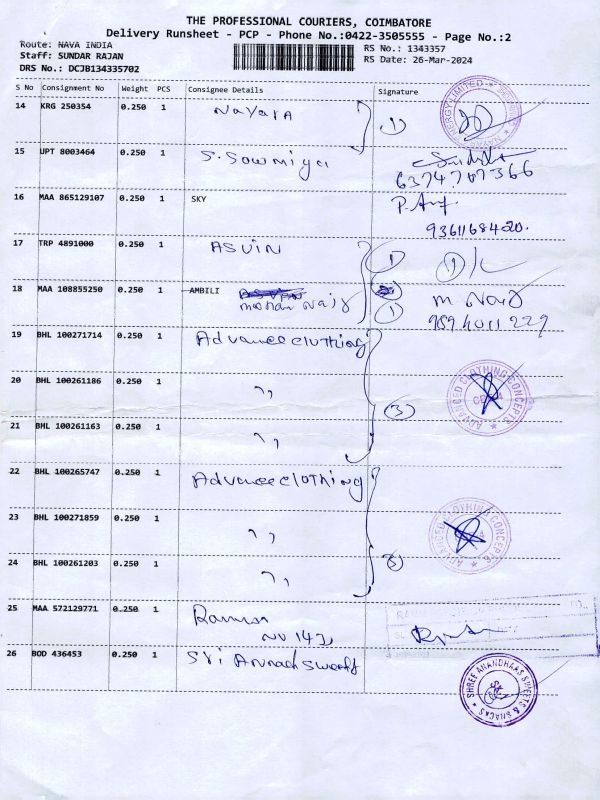 THE PROFESSIONAL COURIERS, COIMBATORE
Delivery Runsheet - PCP - Phone No.:0422-3505555 - Page No.:2
Route: NAVA INDIA
RS No.: 1343357
Staff: SUNDAR RAJAN
RS Date: 26-Mar-2024
DRS No.: DCJB134335702
S No Consignment No Weight PCS Consignee Details Signature
14 KRG 250354 0.250 1 Nayara 1
15 UPT 8003464 0.250 1 S. Sowmiya
6374707366
16 MAA 865129107 0.250 1 SKY
9361168420.
17 TRP 4891000 0.250 1 ASVIN 1 1
18 MAA 108855250 0.250 1 AMBILI mohan 1
19 BHL 100271714 0.250 1 Advance clothing
20 BHL 100261186 0.250 1 ,,
3
ADVANCED CLOTHING CONCEPTS
21 BHL 100261163 0.250 1 ,,
22 BHL 100265747 0.250 1 Advance cloThing
23 BHL 100271859 0.250 1 ,,
ADVANCED CLOTHING CONCEPTS
24 BHL 100261203 0.250 1 ,,
25 MAA 572129771 0.250 1
26 BOD 436453 0.250 1 Sri
SHREE ANANDHAAS SWEETS & SNACAS